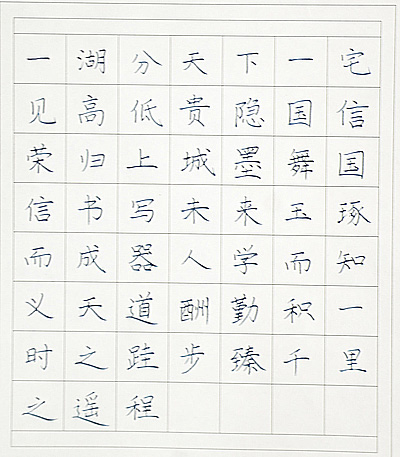 一湖分天下一宅
见高低贵隐国信
荣归上城墨舞国
信书写未来玉琢
而成器人学而知
义天道酬勤积一
时之跬步臻千里
之遥程